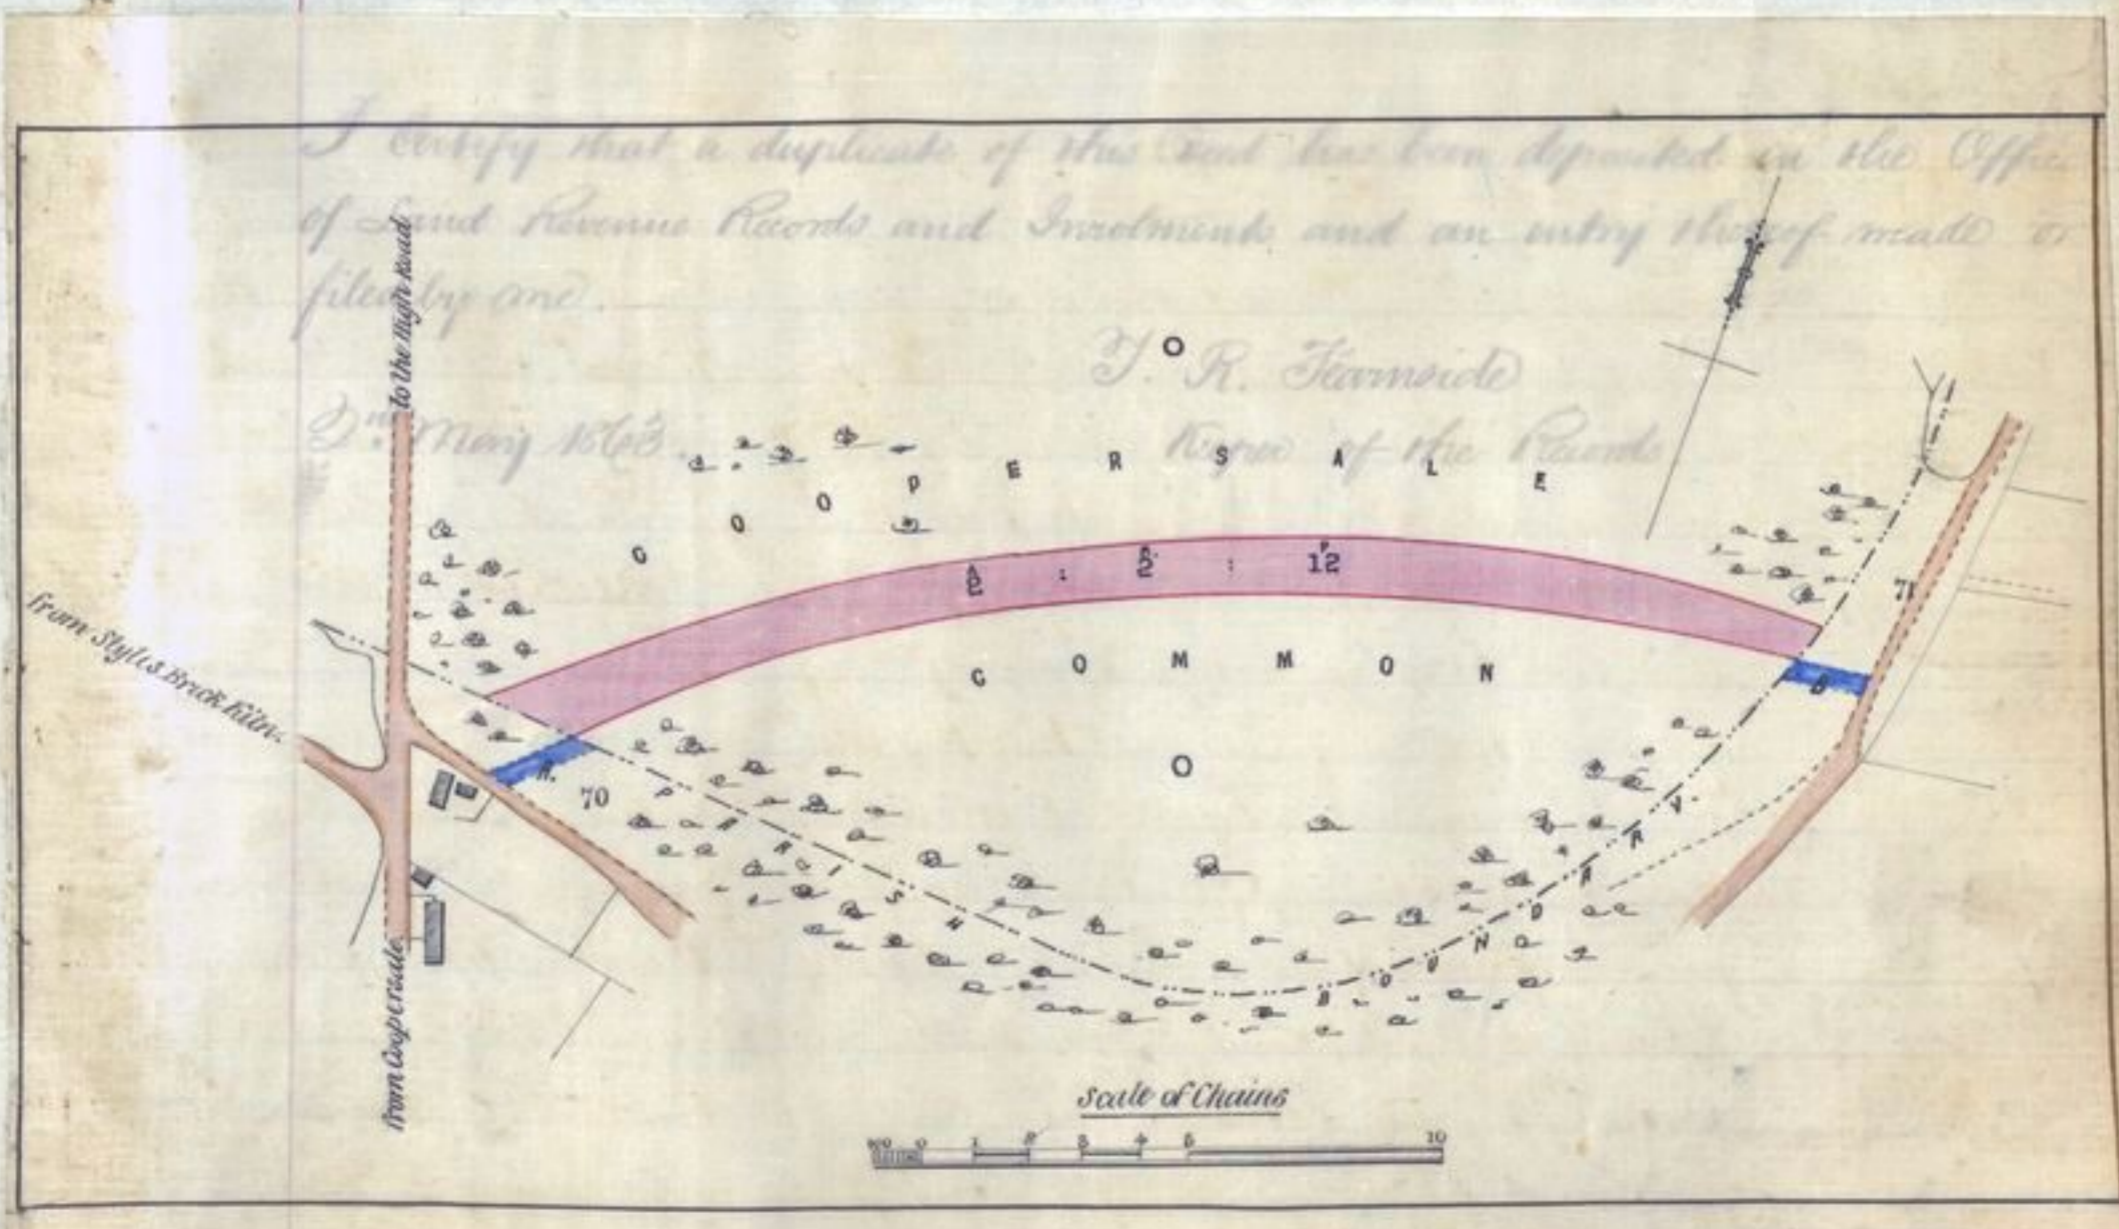 I certify that a duplicate of this Deed has been deposited in the Office
of Land Revenue Records and Inrolments and an entry thereof made or
filed by me.
T. R. Fearnside
2nd. May 1863.
Keeper of the Records
to the High Road
from Styles Brick Kiln.
from Coopersale
COOPERSALE
A R P
2 : 2 : 12
COMMON
71
B
A.
70
PARISH BOUNDARY.
Scale of Chains
100 0 1 2 3 4 5 10